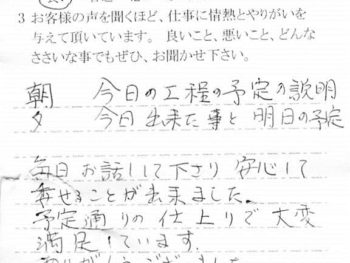 3 お客様の声を聞くほど、仕事に情熱とやりがいを
与えて頂いています。 良いこと、悪いこと、どんな
ささいな事でもぜひ、お聞かせ下さい。
朝 今日の工程の予定の説明
夕 今日出来た事と明日の予定
毎日お話して下さり安心して
任せることが出来ました。
予定通りの仕上りで大変
満足しています。